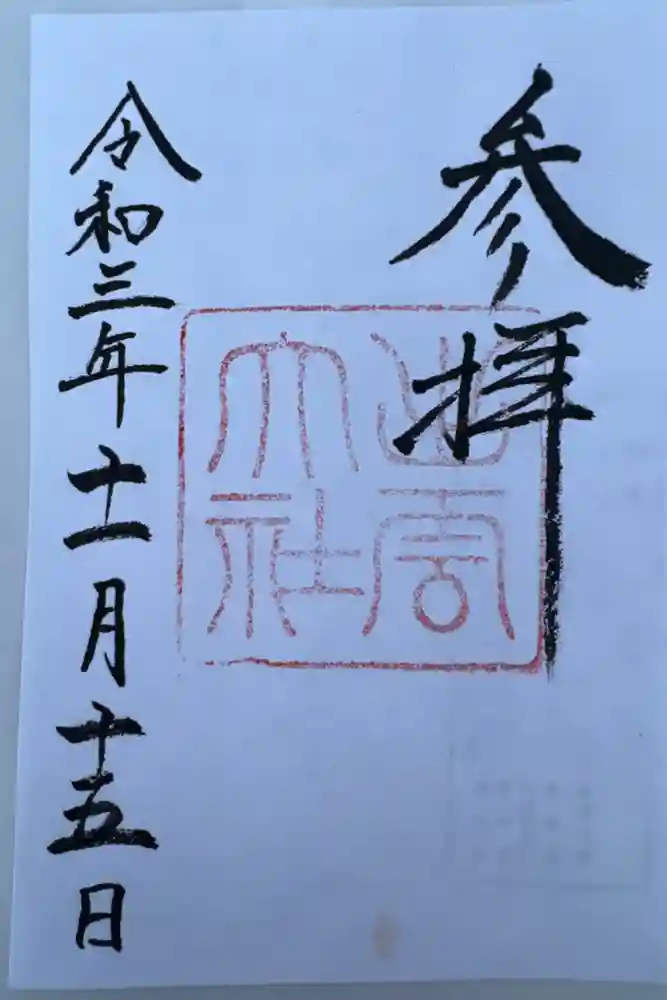 参拝
出雲
大社
令和三年十一月十五日